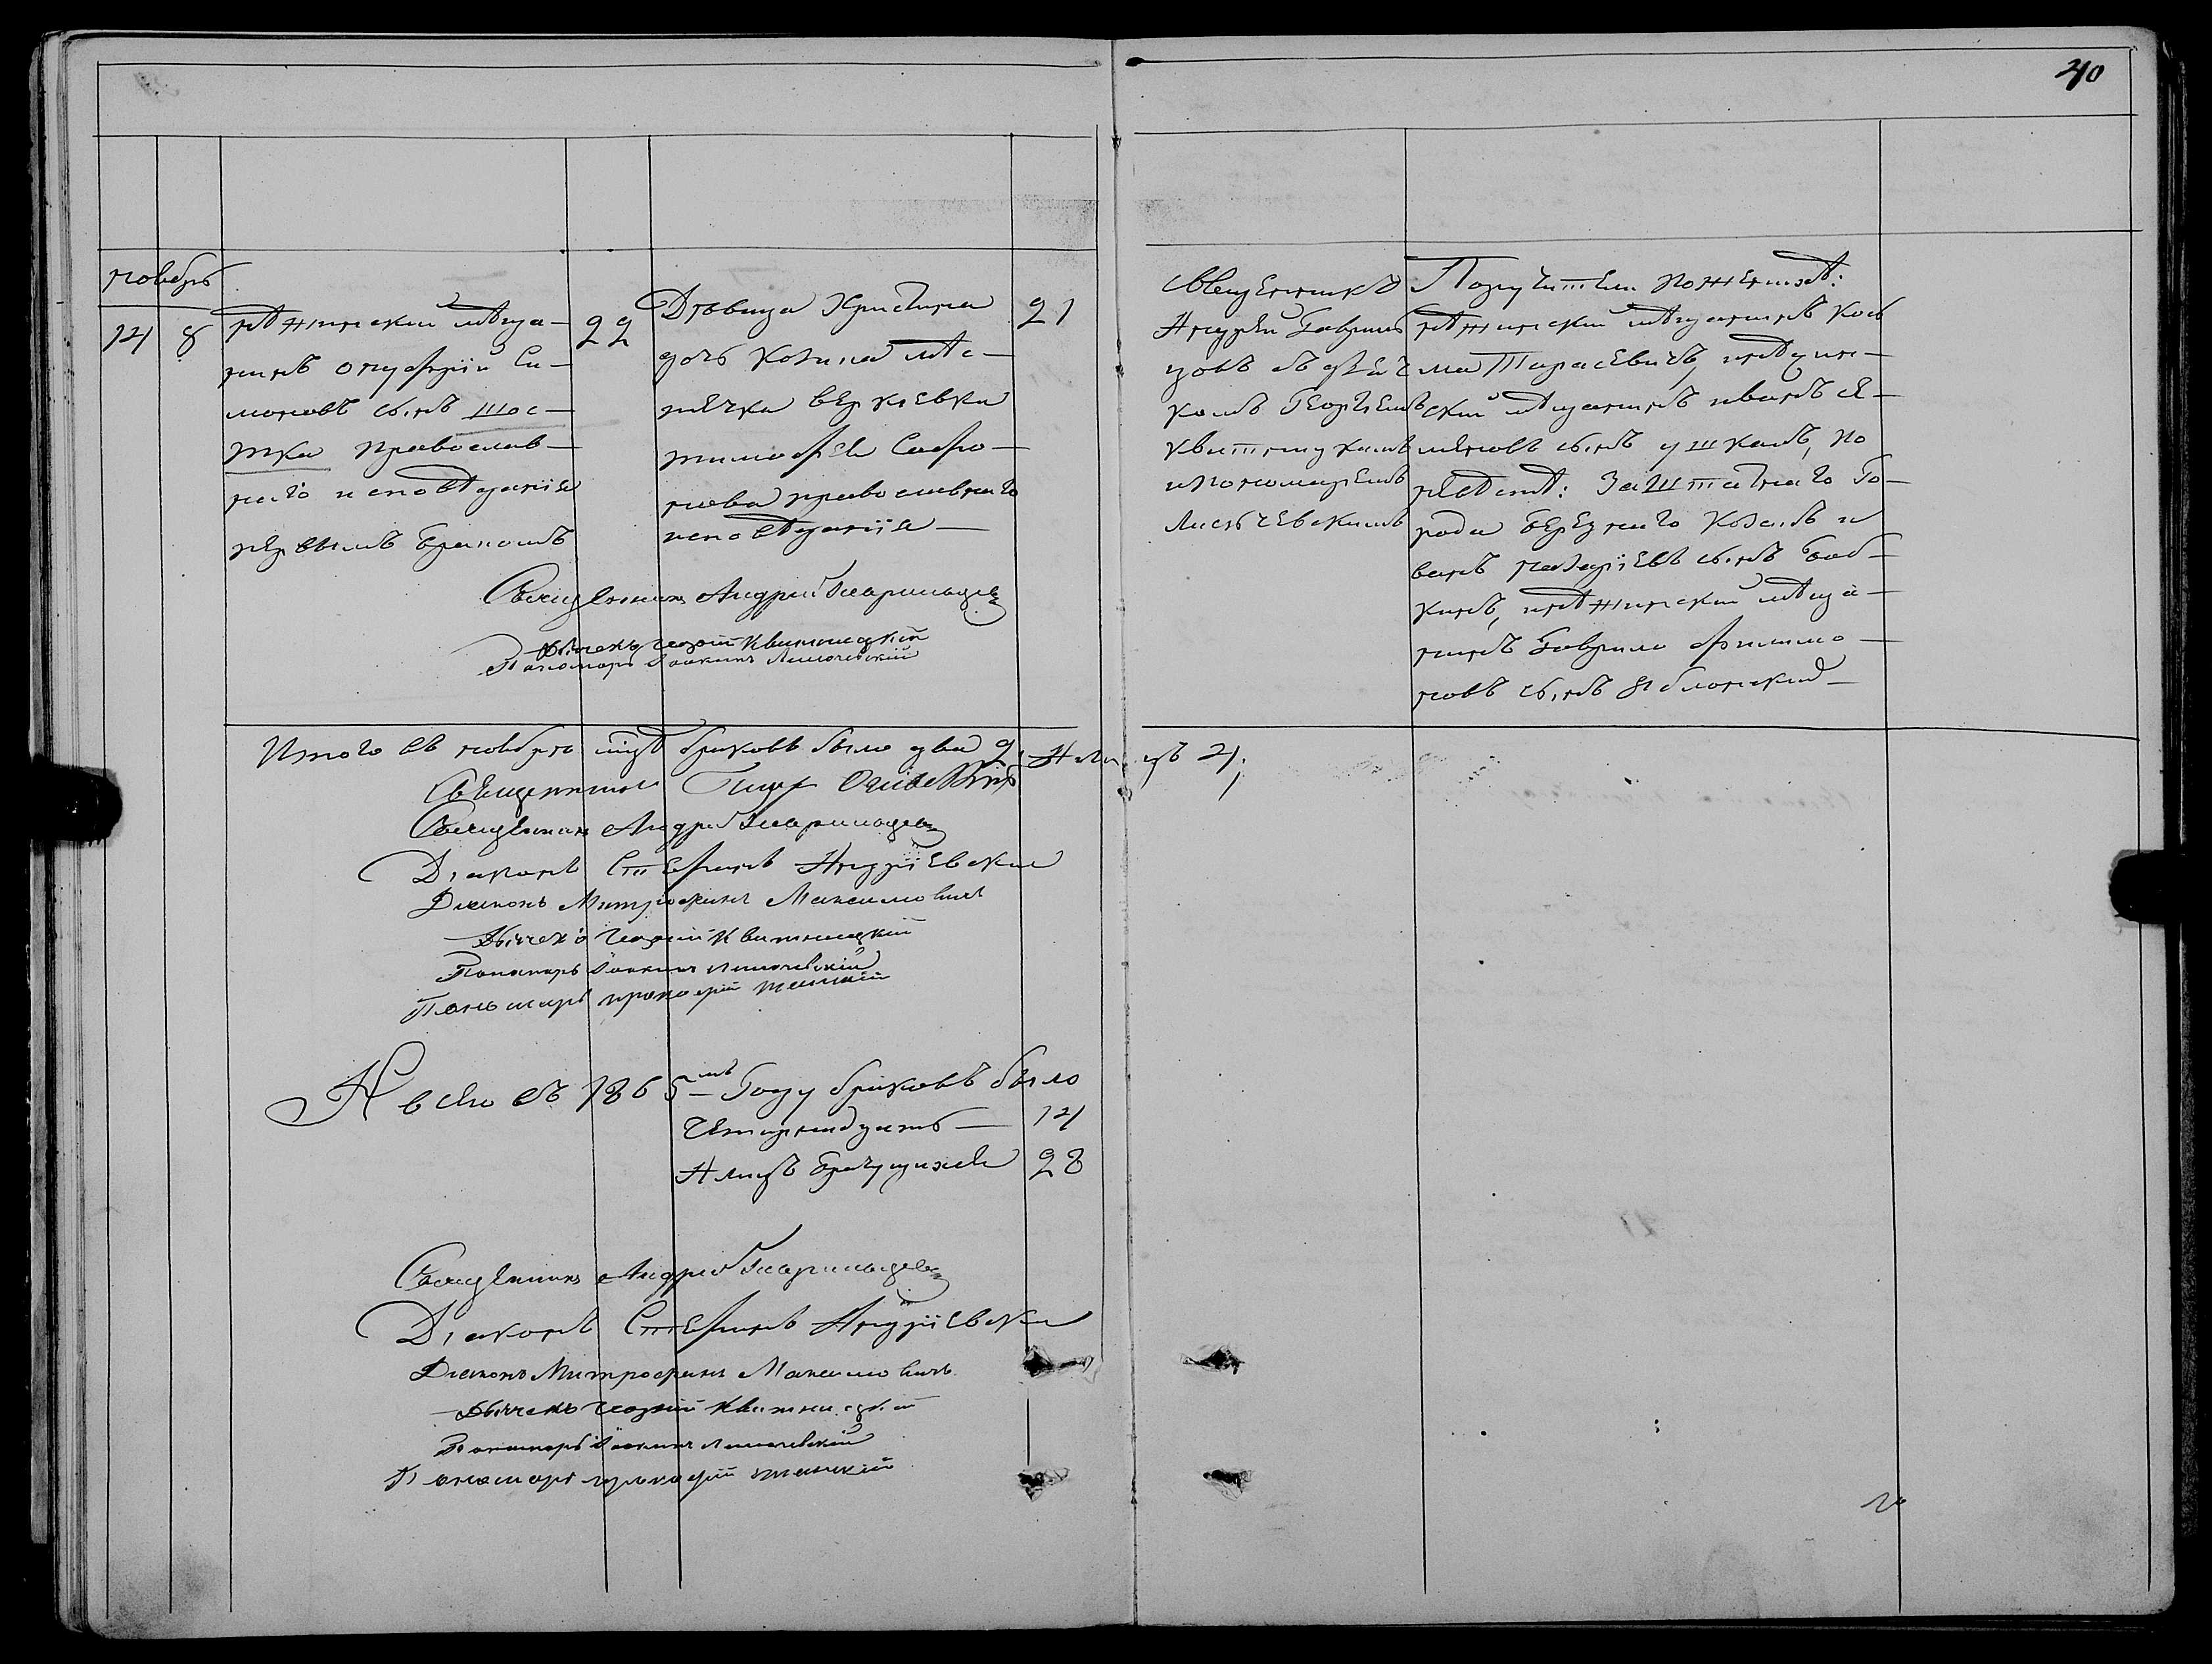 40
ноябрь
14 8
нѣжинскій мѣща-
нинъ Онуфрій Си-
моновъ сынъ Шос-
тка православ-
наго исповѣданія
первымъ бракомъ
22
Дѣвица Христина
дочь козака мѣс-
течка Верхіевки
Тимофея Сафро-
нова православнаго
исповѣданія
21
Священникъ
Андрей Гаврил
цовъ съ дьяч
комъ Георгіемъ
Квитницкимъ
и пономаремъ
Лисичевскимъ
Поручители по женихѣ:
нѣжинскій мѣщанинъ Кось
ма Тарасевичъ, и нѣжин-
скій мѣщанинъ Иванъ Се-
меновъ сынъ Ушкалъ, по
невѣстѣ: Заштатнаго Го-
рода Березнаго козакъ И
ванъ Назаріевъ сынъ Баб-
кинъ, и нѣжинскій мѣща-
нинъ Гаврило Филимо-
новъ сынъ Яблонскій
Священникъ Андрей Гаврильцевъ
Дьячекъ Георгій Квитницкій
Пономарь Іоакимъ Лисичевскій
Итого въ ноябрѣ м-цѣ браковъ было два 2, А лицъ 4;
Священникъ
Священникъ Андрей Гаврильцевъ
Діаконъ Стефанъ Андріевскій
Діаконъ Митрофанъ Максимовичъ
Дьячекъ Георгій Квитницкій
Пономарь Іоакимъ Лисичевскій
Пономарь Прокофій
А всего въ 1865мъ Году браковъ было
Четырнадцать 14
А лицъ брачущихся 28
Священникъ Андрей Гаврильцевъ
Діаконъ Стефанъ Андріевскій
Діаконъ Митрофанъ Максимовичъ
Дьячекъ Георгій Квитницкій
Пономарь Іоакимъ Лисичевскій
Пономарь Прокофій